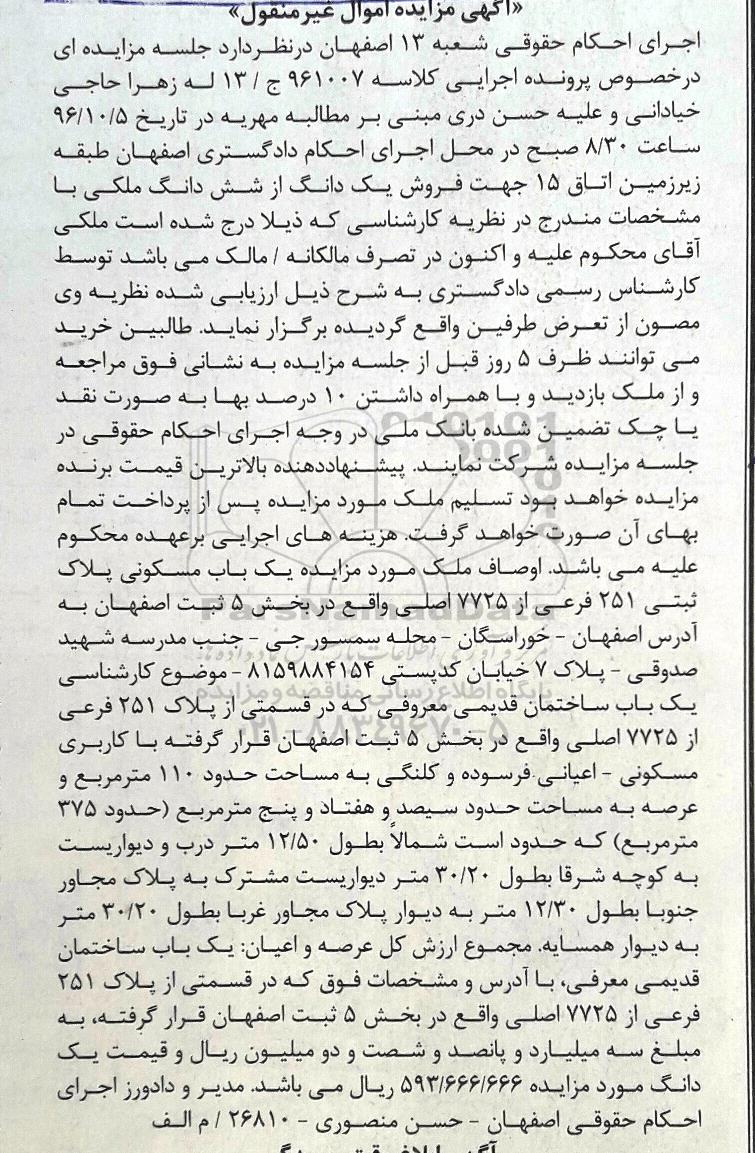 «آگهی مزایده اموال غیرمنقول»
اجرای احکام حقوقی شعبه ۱۳ اصفهان درنظردارد جلسه مزایده ای
درخصوص پرونده اجرایی کلاسه ۹۶۱۰۰۷ ج / ۱۳ له زهرا حاجی
خیادانی و علیه حسن دری مبنی بر مطالبه مهریه در تاریخ ۹۶/۱۰/۵
ساعت ۸/۳۰ صبح در محل اجرای احکام دادگستری اصفهان طبقه
زیرزمین اتاق ۱۵ جهت فروش یک دانگ از شش دانگ ملکی با
مشخصات مندرج در نظریه کارشناسی که ذیلا درج شده است ملکی
آقای محکوم علیه و اکنون در تصرف مالکانه / مالک می باشد توسط
کارشناس رسمی دادگستری به شرح ذیل ارزیابی شده نظریه وی
مصون از تعرض طرفین واقع گردیده برگزار نماید. طالبین خرید
می توانند ظرف ۵ روز قبل از جلسه مزایده به نشانی فوق مراجعه
و از ملک بازدید و با همراه داشتن ۱۰ درصد بها به صورت نقد
یا چک تضمین شده بانک ملی در وجه اجرای احکام حقوقی در
جلسه مزایده شرکت نمایند. پیشنهاددهنده بالاترین قیمت برنده
مزایده خواهد بود تسلیم ملک مورد مزایده پس از پرداخت تمام
بهای آن صورت خواهد گرفت. هزینه های اجرایی برعهده محکوم
علیه می باشد. اوصاف ملک مورد مزایده یک باب مسکونی پلاک
ثبتی ۲۵۱ فرعی از ۷۷۲۵ اصلی واقع در بخش ۵ ثبت اصفهان به
آدرس اصفهان - خوراسگان - محله سمسور جی - جنب مدرسه شهید
صدوقی - پلاک ۷ خیابان کدپستی ۸۱۵۹۸۸۴۱۵۴ - موضوع کارشناسی
یک باب ساختمان قدیمی معروفی که در قسمتی از پلاک ۲۵۱ فرعی
از ۷۷۲۵ اصلی واقع در بخش ۵ ثبت اصفهان قرار گرفته با کاربری
مسکونی - اعیانی فرسوده و کلنگی به مساحت حدود ۱۱۰ مترمربع و
عرصه به مساحت حدود سیصد و هفتاد و پنج مترمربع (حدود ۳۷۵
مترمربع) که حدود است شمالاً بطول ۱۲/۵۰ متر درب و دیواریست
به کوچه شرقا بطول ۳۰/۲۰ متر دیواریست مشترک به پلاک مجاور
جنوبا بطول ۱۲/۳۰ متر به دیوار پلاک مجاور غربا بطول ۳۰/۲۰ متر
به دیوار همسایه. مجموع ارزش کل عرصه و اعیان: یک باب ساختمان
قدیمی معرفی، با آدرس و مشخصات فوق که در قسمتی از پلاک ۲۵۱
فرعی از ۷۷۲۵ اصلی واقع در بخش ۵ ثبت اصفهان قرار گرفته، به
مبلغ سه میلیارد و پانصد و شصت و دو میلیون ریال و قیمت یک
دانگ مورد مزایده ۵۹۳/۶۶۶/۶۶۶ ریال می باشد. مدیر و دادورز اجرای
احکام حقوقی اصفهان - حسن منصوری - ۲۶۸۱۰ / م الف
ParsNamadData
پایگاه اطلاع رسانی مناقصه و مزایده
۰۲۱-۸۸۳۴۹۶۷۰-۵